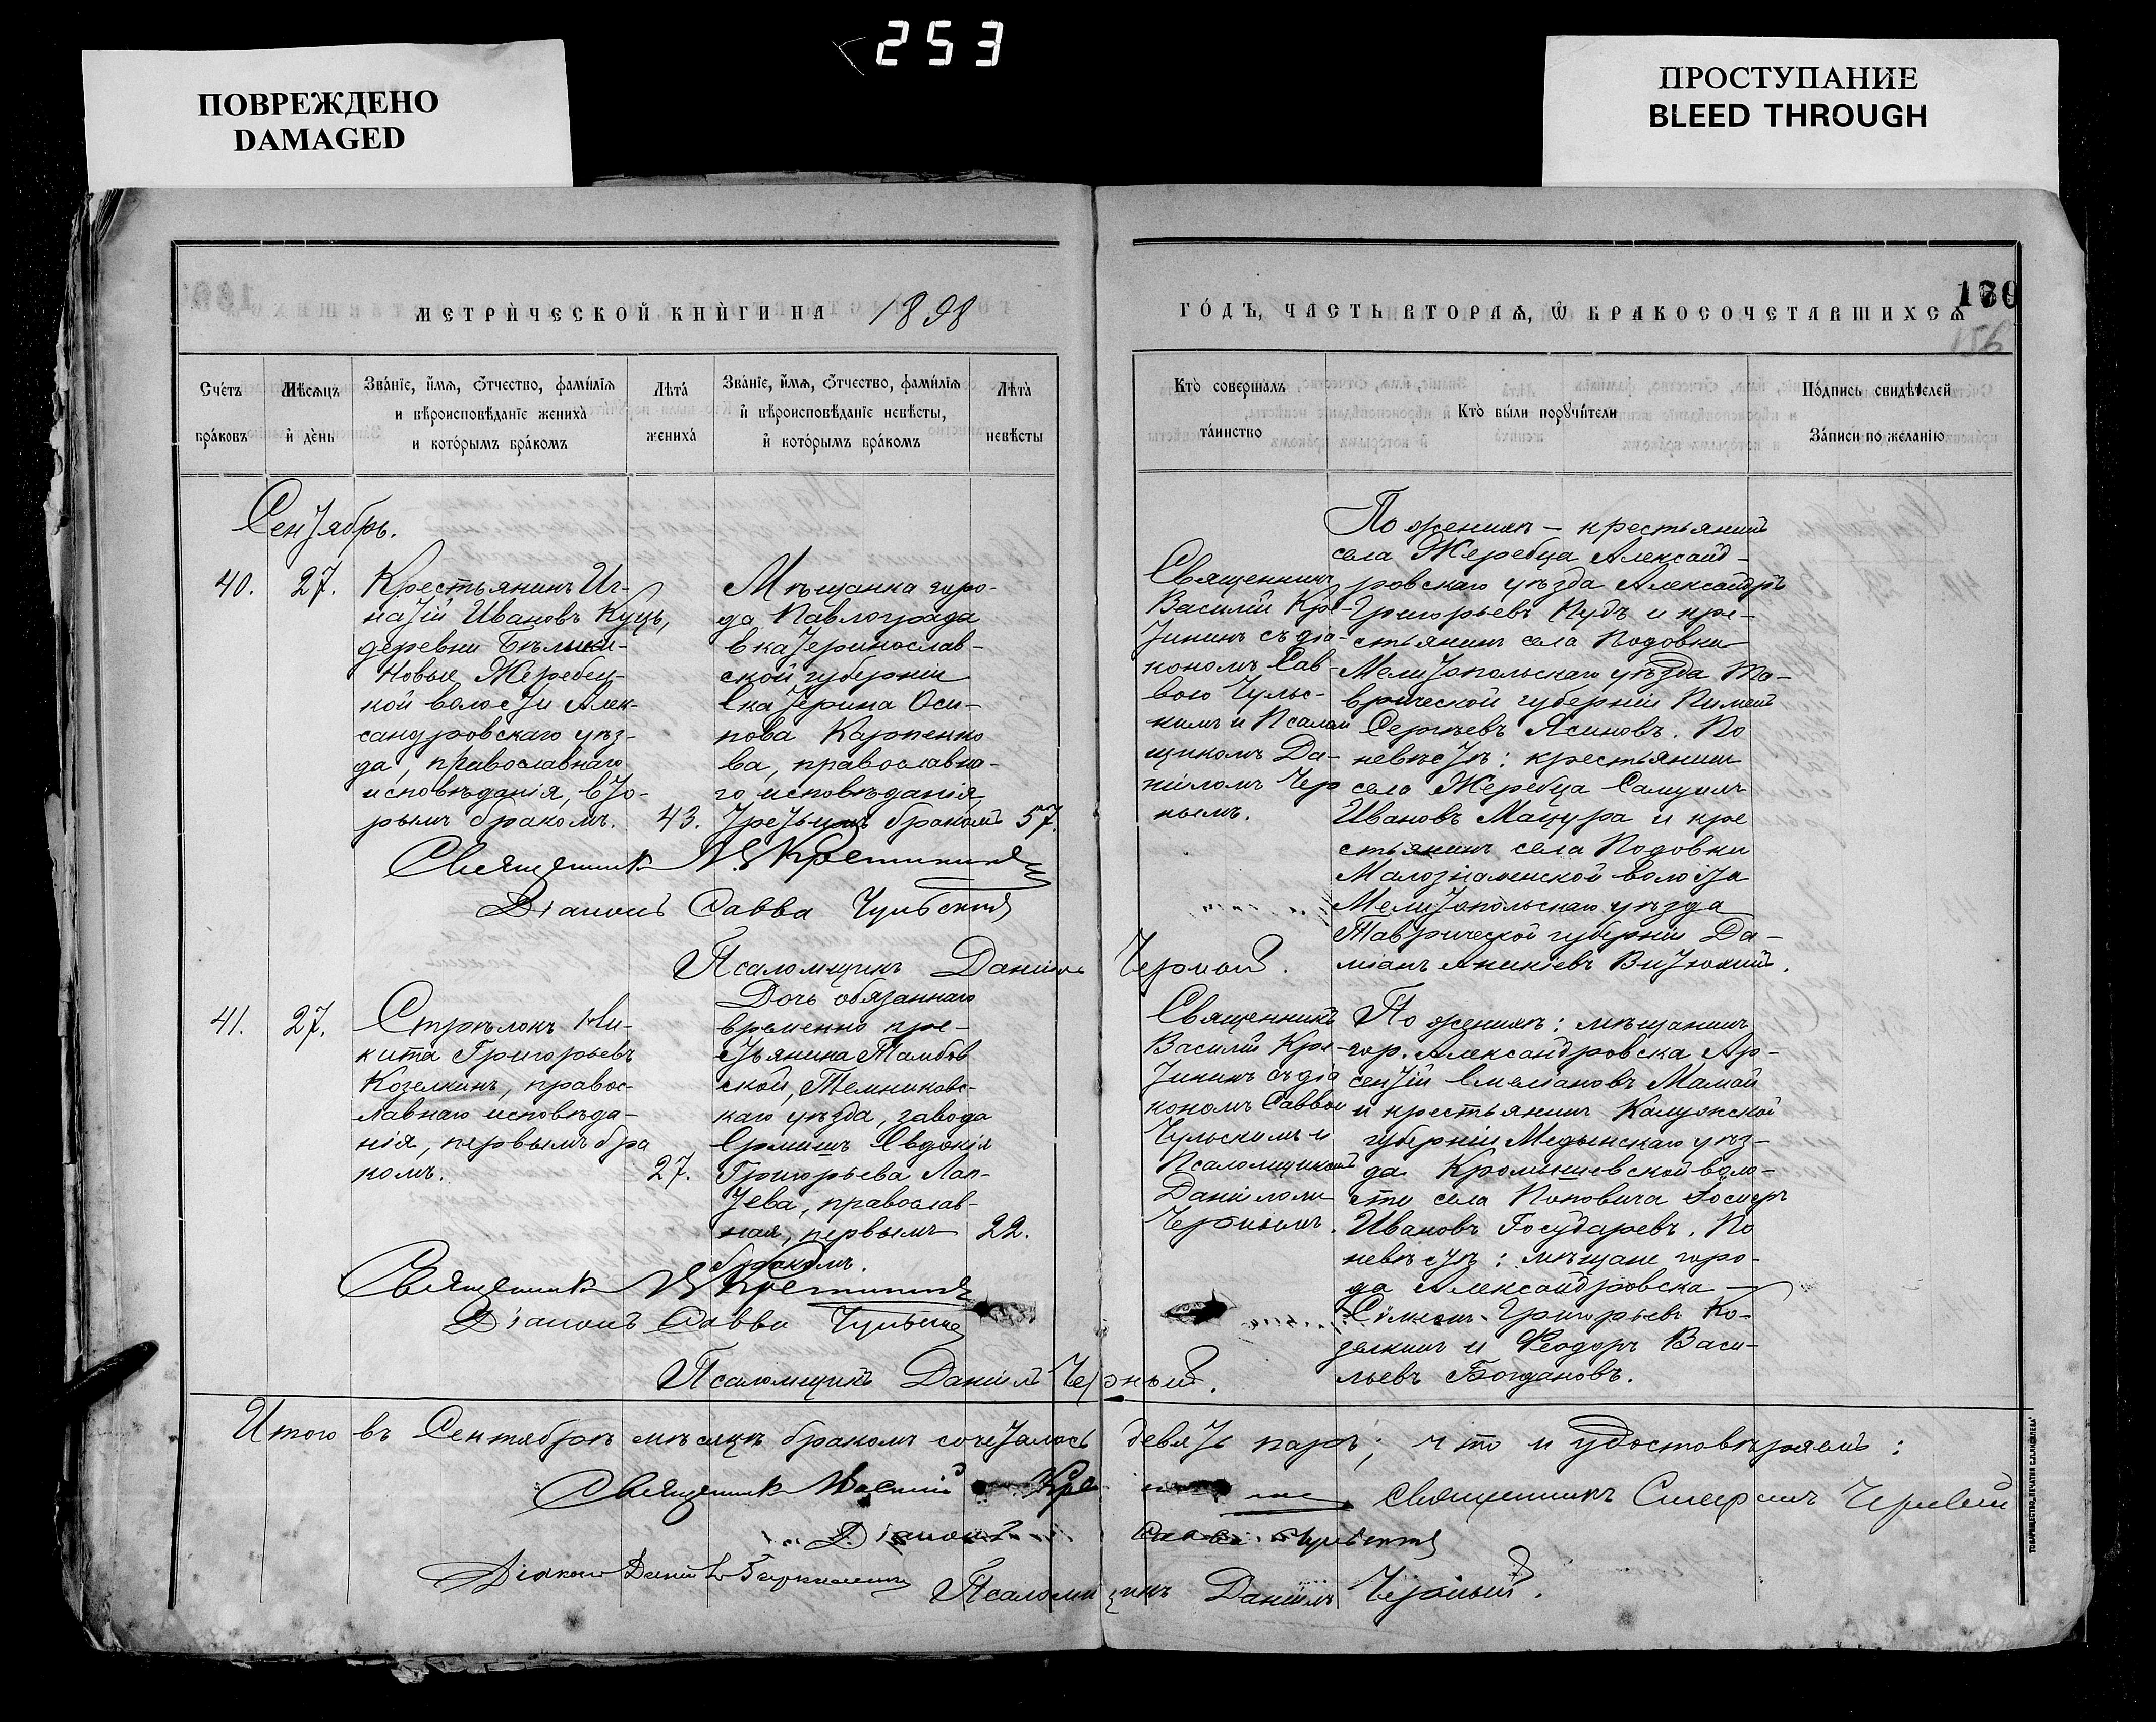 253
ПОВРЕЖДЕНО
DAMAGED
ПРОСТУПАНИЕ
BLEED THROUGH
МЕТРИ́ЧЕСКОЙ КНИ́ГИ НА 1898
ГО́ДЪ, ЧАСТЬ ВТОРАѦ, Ѡ БРАКОСОЧЕТАВШИХСѦ
130
156
Сче́тъ
бра́ковъ
Мѣ́сѧцъ
и҆ де́нь
Зва́нїе, и҆́мѧ, ѻ҆́тчество, фами́лїѧ
и вѣроисповѣ́данїе жениха̀
и кото́рымъ бра́комъ
Лѣта̀
жениха̀
Зва́нїе, и҆́мѧ, ѻ҆́тчество, фами́лїѧ
и҆ вѣроисповѣ́данїе невѣ́сты,
и҆ кото́рымъ бра́комъ
Лѣта̀
невѣ́сты
Кто̀ соверша́лъ
та́инство
Кто̀ бы́ли порꙋчи́тели
По́дпись свидѣ́телей
За́писи по жела́нїю
Сентябрь.
40.
27.
Крестьянинъ Иг-
натій Ивановъ Куцъ,
деревни Бѣльки-
Новые Жеребец-
кой волости Алек-
сандровскаго уѣз-
да, православнаго
исповѣданія, вто-
рымъ бракомъ.
43.
Мѣщанка горо-
да Павлограда
Екатеринослав-
ской губерніи
Екатерина Оси-
пова Карпенко
ва, православна-
го исповѣданія,
третьимъ бракомъ
57.
Священникъ
Василій Кре-
тининъ съ діа-
кономъ Сав-
вою Чульс-
кимъ и Псалом
щикомъ Да-
ніиломъ Чер
нымъ.
По женихѣ – крестьянинъ
села Жеребца Александ-
ровскаго уѣзда Александръ
Григорьевъ Пудъ и кре-
стьянинъ села Подовки
Мелитопольскаго уѣзда Та-
врической губерніи Пименъ
Сергѣевъ Ясиновъ. По
невѣстѣ: крестьянинъ
села Жеребца Самуилъ
Ивановъ Мацура и кре
стьянинъ села Подовки
Малознаменской волости
Мелитопольскаго уѣзда
Таврической губерніи Да-
міанъ Аникіевъ Витюхинъ.
Священникъ В. Кретининъ
Діаконъ Савва Чульскій
Псаломщикъ Даніилъ Черный.
41.
27.
Стрѣлокъ Ни-
кита Григорьевъ
Козелкинъ, правос-
лавнаго исповѣда-
нія, первымъ бра
комъ.
27.
Дочь обязаннаго
временно кре-
стьянина Тамбов
ской, Темниковс-
каго уѣзда, завода
Ермишъ Евдокія
Григорьева Лап-
тева, православ-
ная, первымъ
бракомъ.
22.
Священникъ
Василій Кре-
тининъ съ діа
кономъ Саввою
Чульскимъ и
Псаломщикомъ
Даніиломъ
Чернымъ.
По женихѣ: мѣщанинъ
гор. Александровска Ар-
сентій Емеліановъ Мамай
и крестьянинъ Калужской
губерніи Медынскаго уѣз-
да Кромишевской воло-
сти села Поповича Іосифъ
Ивановъ Государевъ. По
невѣстѣ: мѣщане горо-
да Александровска –
Симеонъ Григорьевъ Ко-
зелкинъ и Ѳеодоръ Васи-
льевъ Богдановъ.
Священникъ В. Кретининъ
Діаконъ Савва Чульскій
Псаломщикъ Даніилъ Черный.
Итого въ Сентябрѣ мѣсяцѣ бракомъ сочеталось девять паръ; что и удостовѣряемъ:
Священникъ Василій Кре
Священникъ
Діаконъ Савва Чульскій
Діаконъ
Псаломщикъ Даніилъ Черный.